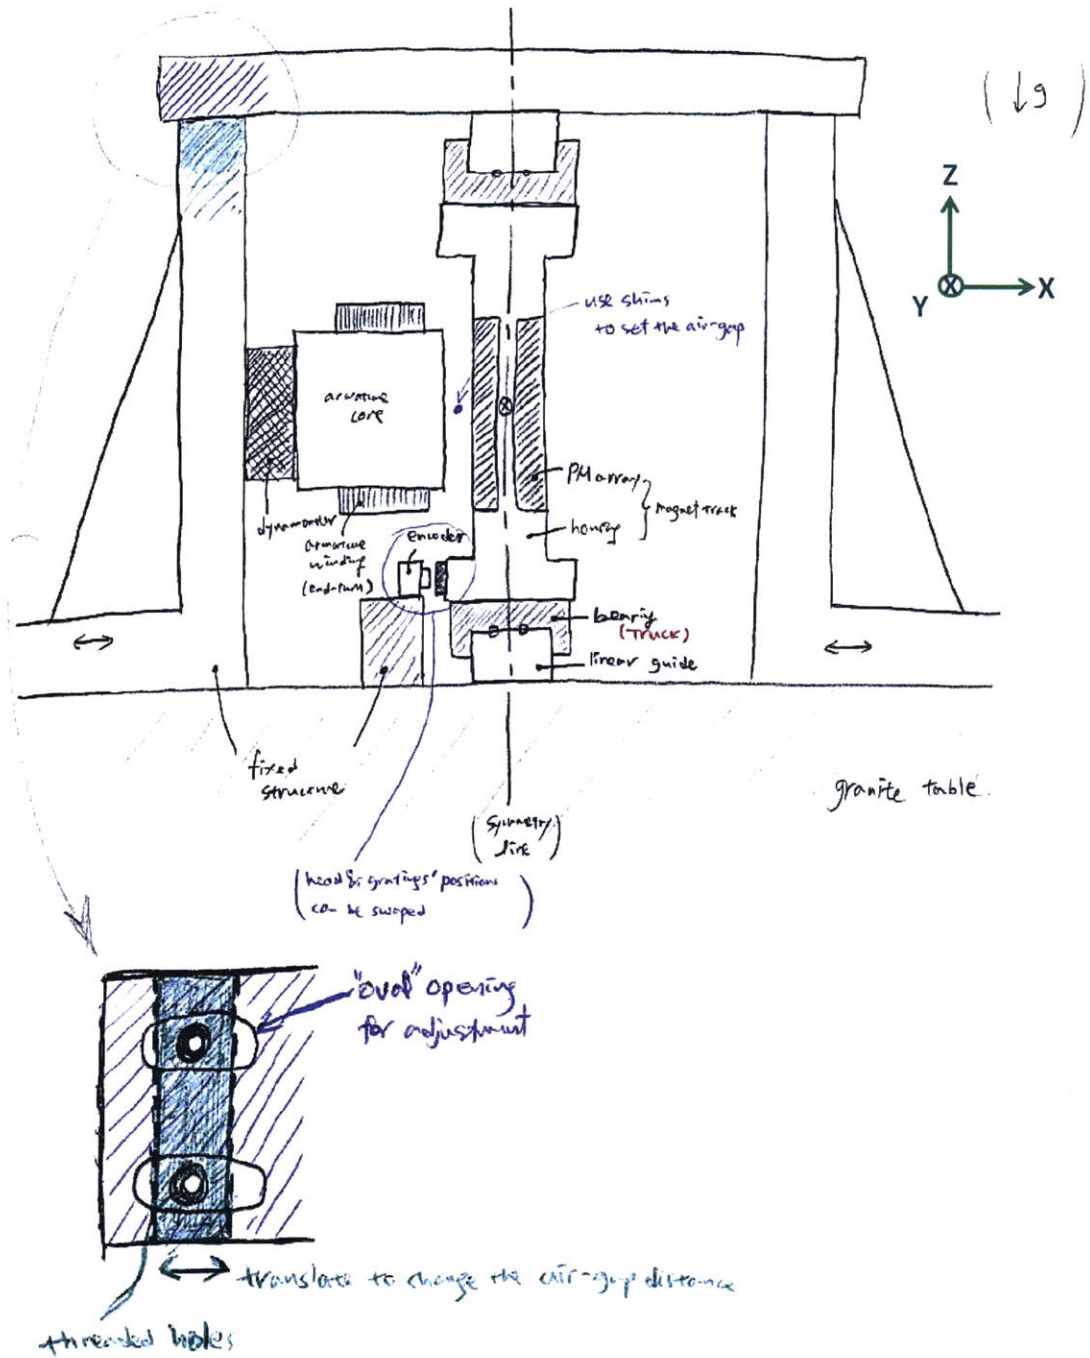 (↓g)
Z
X
Y
use shims
to set the air-gap
armature
core
PM array
magnet track
housing
dynamometer
armature
winding
(end-turn)
encoder
bearing
(TRUCK)
linear guide
fixed
structure
granite table.
(symmetry
line)
(head & gratings' positions
can be swaped)
"oval" opening
for adjustment
translate to change the air-gap distance
threaded holes